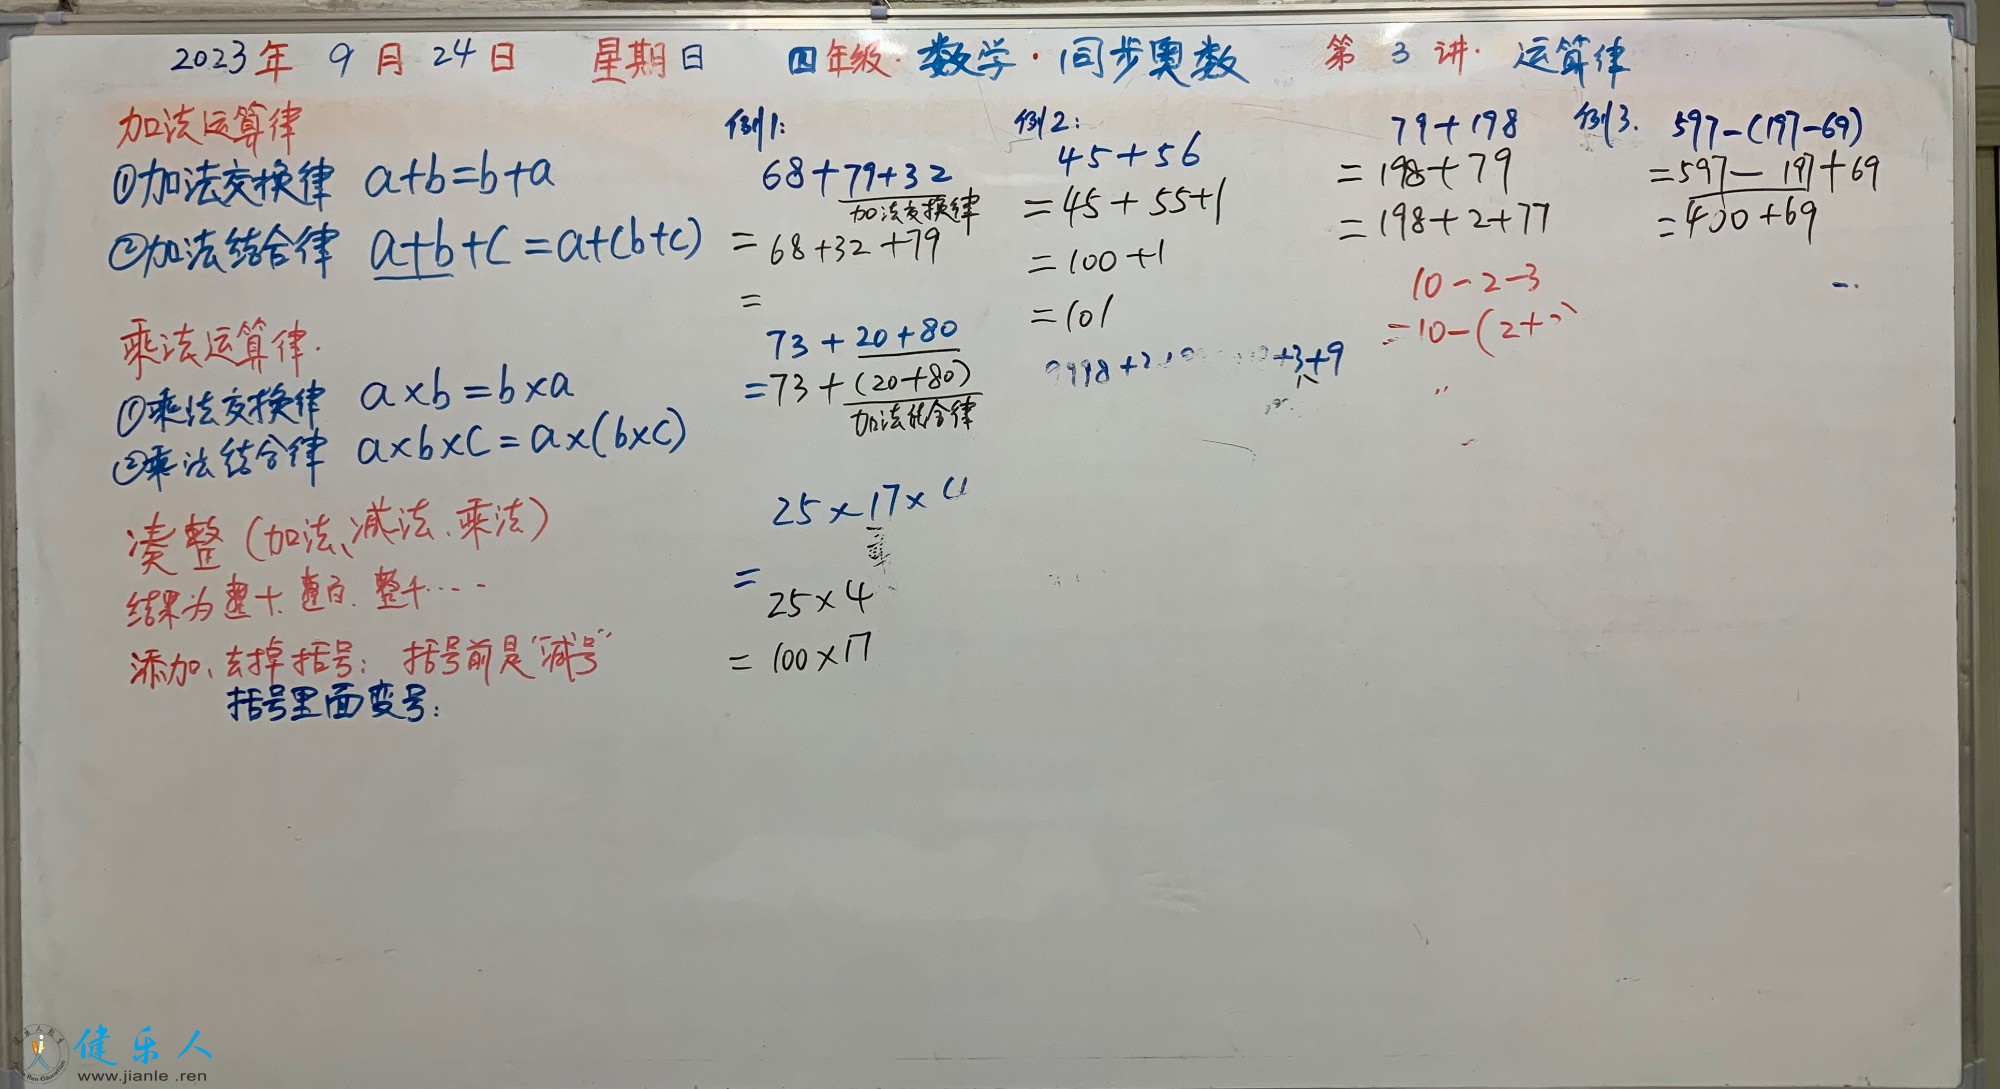 2023年 9月 24日 星期日 四年级·数学·同步奥数 第 3 讲· 运算律
加法运算律
①加法交换律 a+b=b+a
②加法结合律 a+b+c=a+(b+c)
乘法运算律.
①乘法交换律 a×b=b×a
②乘法结合律 a×b×c=a×(b×c)
凑整(加法、减法、乘法)
结果为整十、整百、整千……
添加、去掉括号: 括号前是"减号"
括号里面变号:
例1:
68+79+32
加法交换律
=68+32+79
=
73+20+80
=73+(20+80)
加法结合律
25×17×4
=
25×4
=100×17
例2:
45+56
=45+55+1
=100+1
=101
9998+2
+3+9
79+198
=198+79
=198+2+77
10-2-3
=10-(2+
例3.
597-(197-69)
=597-197+69
=400+69
健乐人
www.jianle.ren